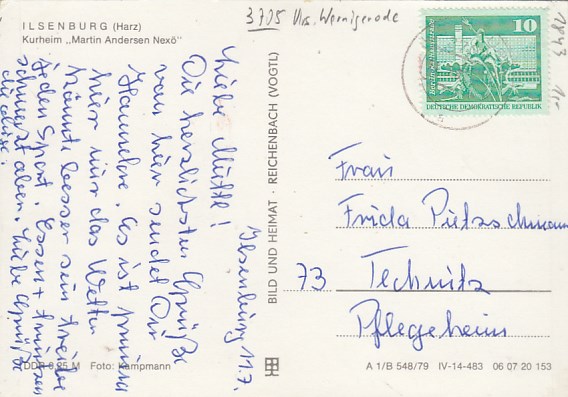 ILSENBURG (Harz)
Kurheim „Martin Andersen Nexö"
3705 Krs. Wernigerode
1843
10
Berlin
DEUTSCHE DEMOKRATISCHE REPUBLIK
Ilsenburg 11.7.
Liebe Mutti!
Die herzlichsten Grüße
von hier sendet Dir
Hannelore. Es ist prima
hier nur das Wetter
könnte besser sein treibe
jeden Sport. Essen + trinken
schmeckt aben. Liebe Grüße
BILD UND HEIMAT · REICHENBACH (VOGTL)
Frau
Frida Pietzschmann
73 Technitz
Pflegeheim
DDR 0,25 M Foto: Kampmann
A 1/B 548/79 IV-14-483 06 07 20 153